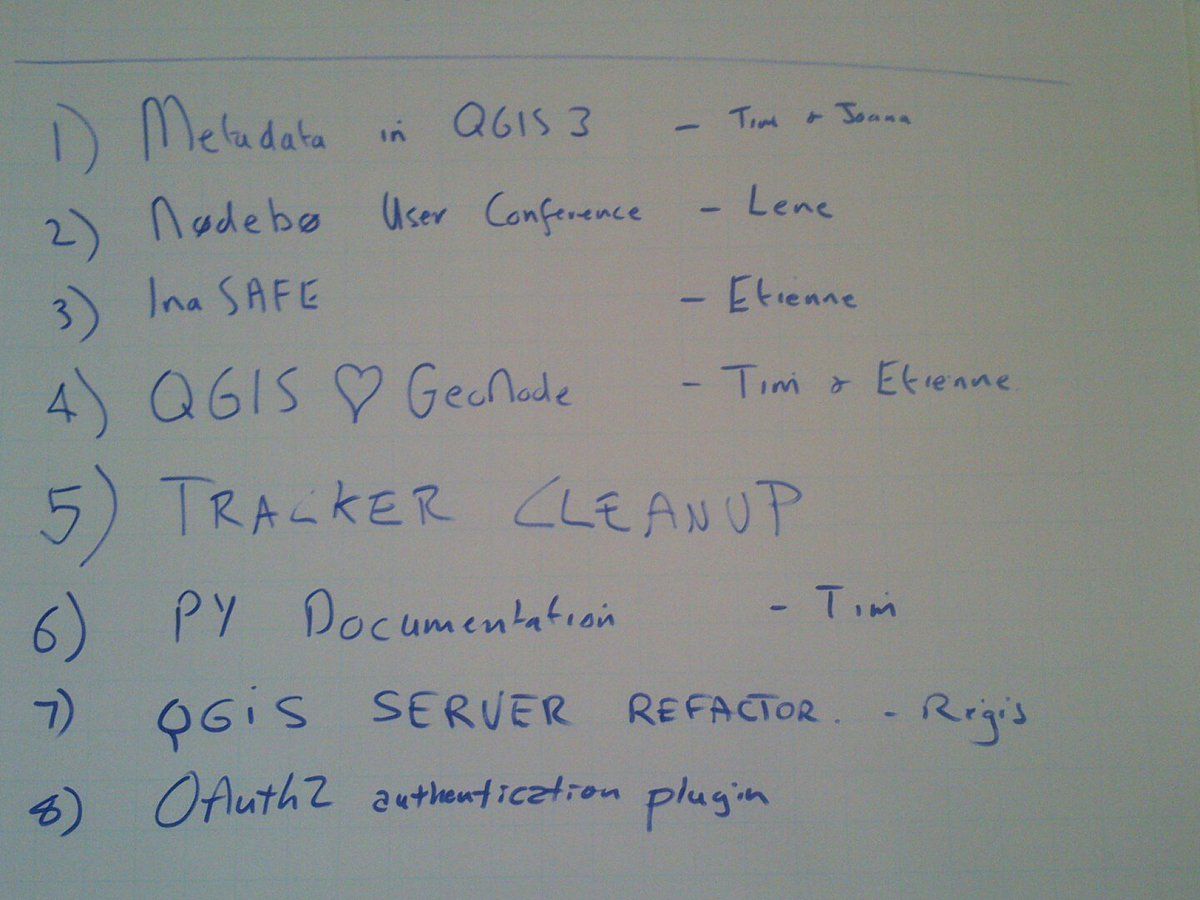 1) Metadata in QGIS 3 - Tim & Joana
2) Nødebø User Conference - Lene
3) InaSAFE - Etienne
4) QGIS ♡ GeoNode - Tim & Etienne
5) TRACKER CLEANUP
6) PY Documentation - Tim
7) QGiS SERVER REFACTOR. - Régis
8) OAuth2 authentication plugin